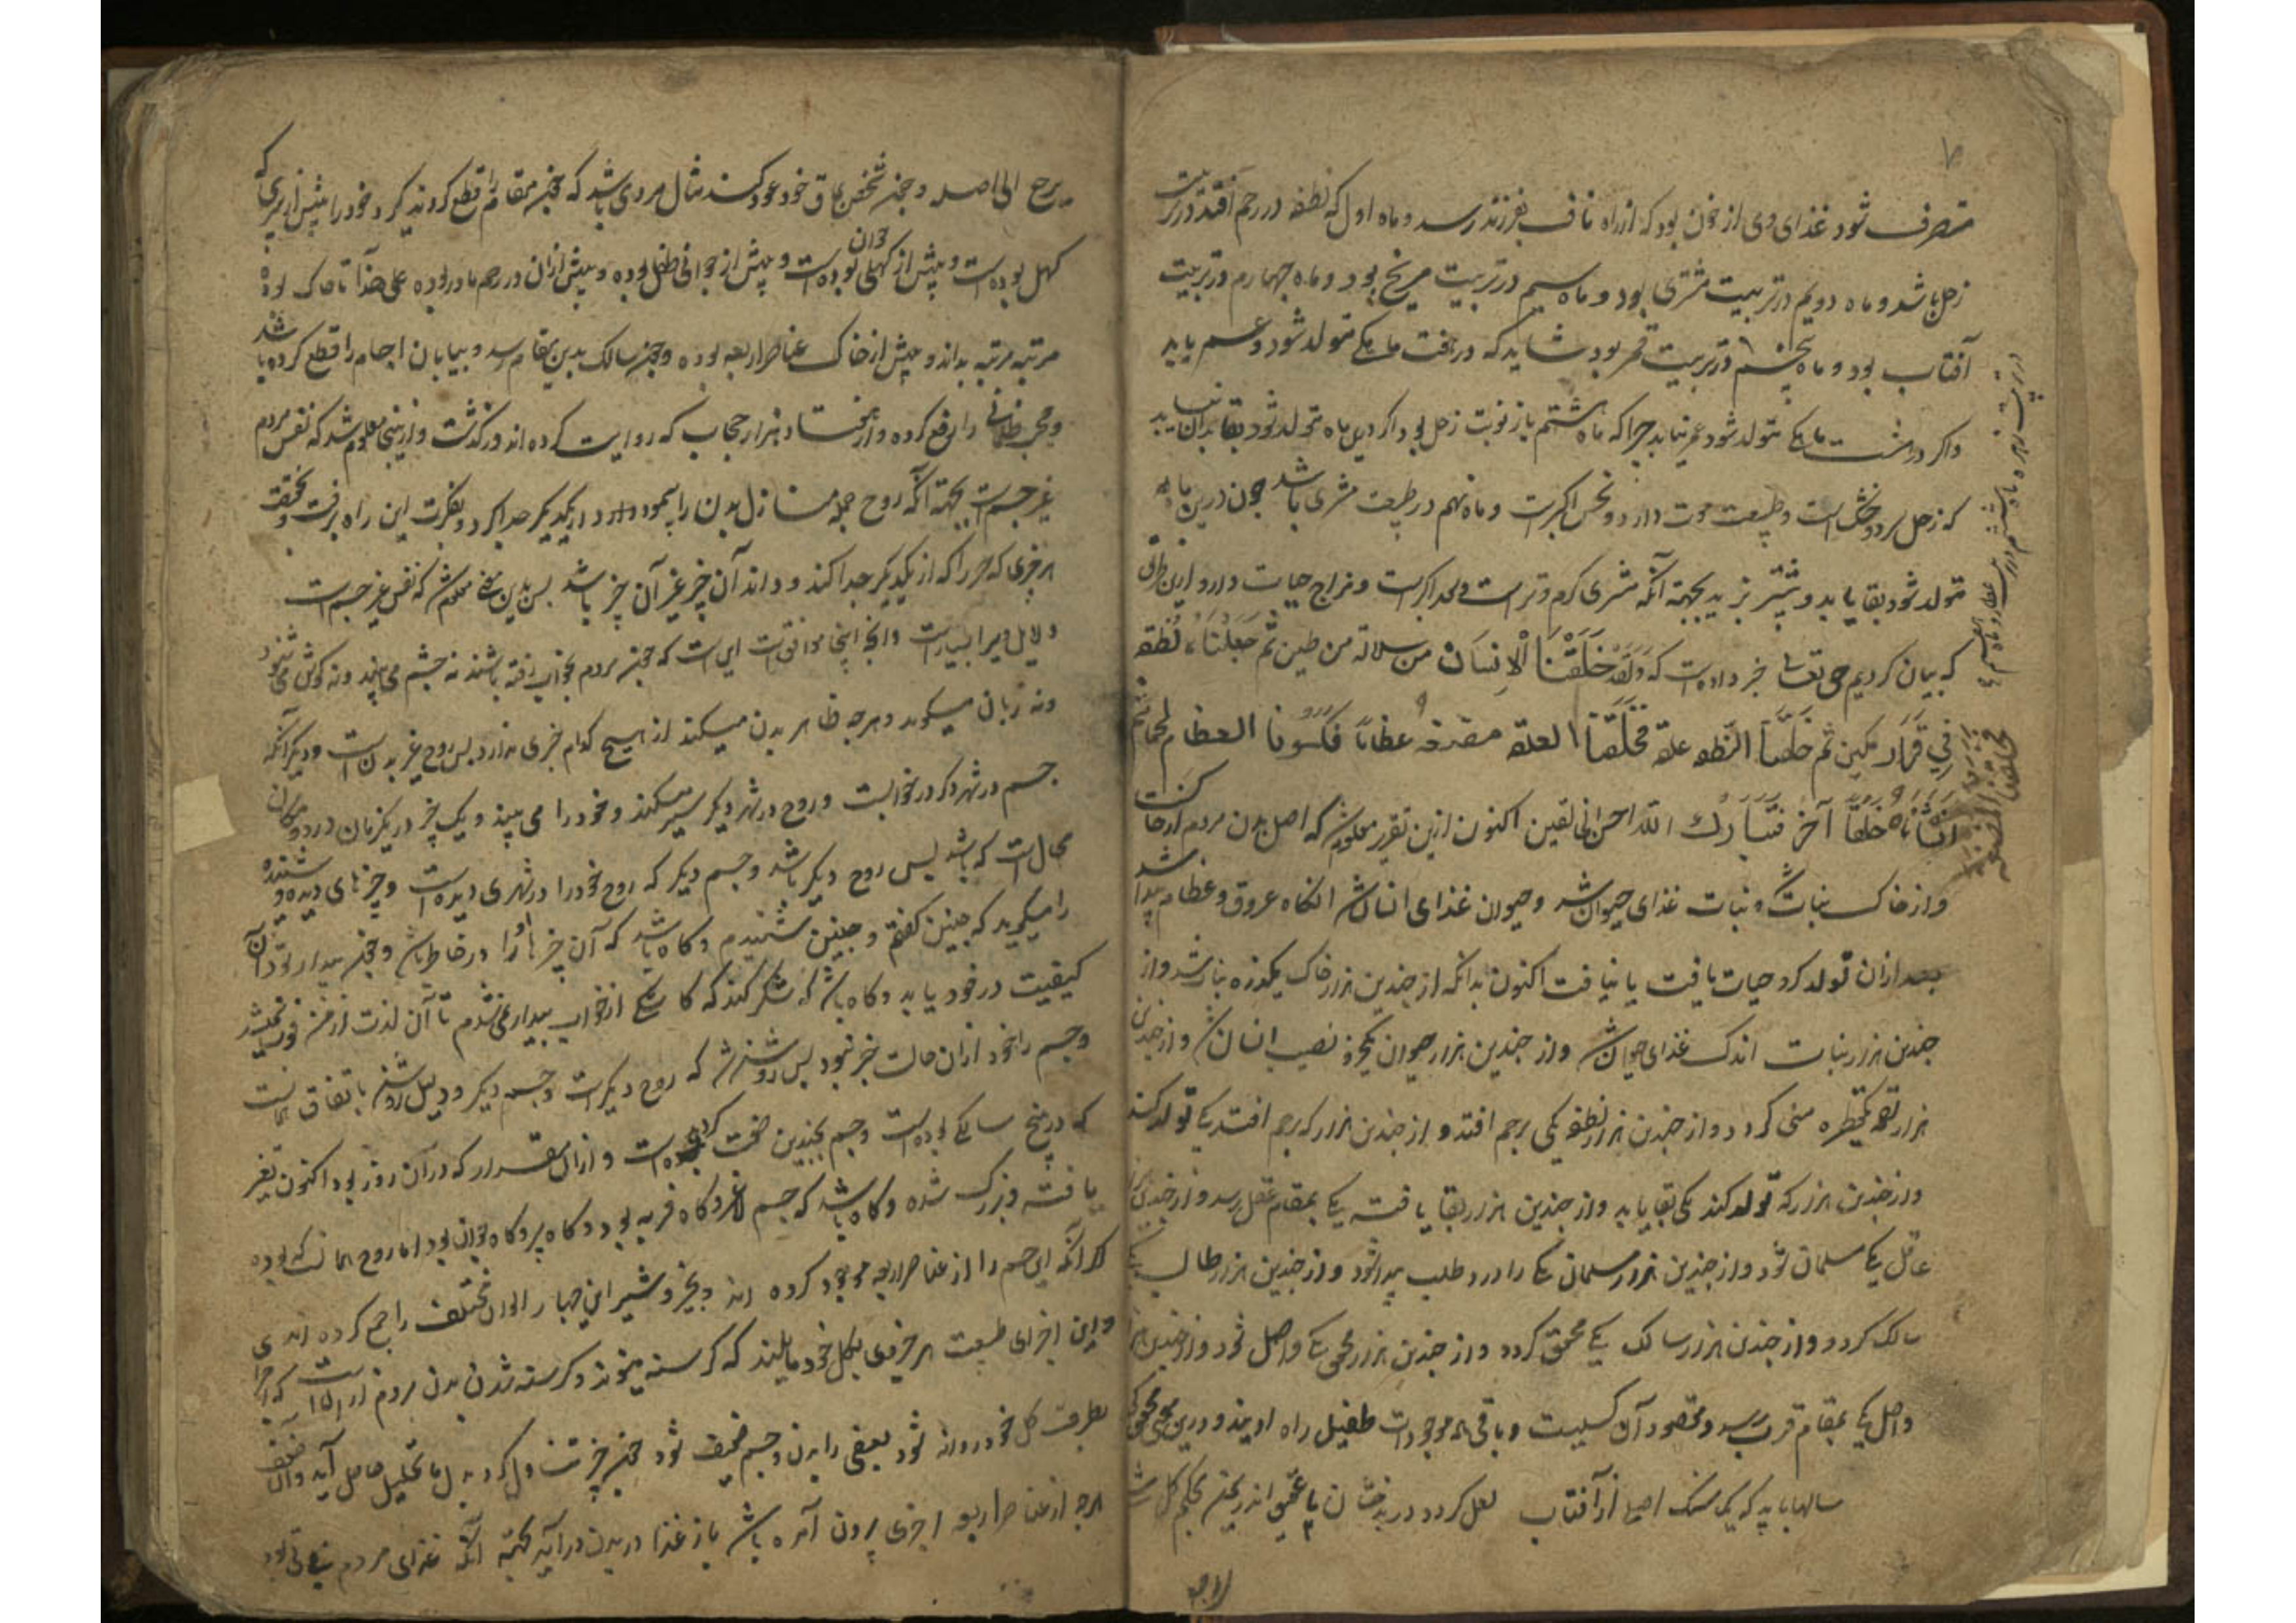 ۷
متصرف شود غذای وی از خون بود که از راه ناف بفرزند رسد و ماه اول که نطفه در رحم افتد در تربیت
زحل باشد و ماه دویم در تربیت مشتری بود و ماه سیم در تربیت مریخ بود و ماه چهارم در تربیت
آفتاب بود و ماه پنجم در تربیت قمر بود شاید که در هفت ماهکی متولد شود و عمر یابد
واکر در هشت ماهکی متولد شود عمر نیابد چرا که ماه هشتم باز نوبت زحل بود
که زحل سرد و خشک است و طبیعت موت دارد و نحس اکبرست و ماه نهم در طبیعت مشتری باشد چون درین ماه
متولد شود بقا یابد و بیشتر بزید بجهة آنکه مشتری کرم و ترست و سعد اکبرست و مزاج حیات دارد ازین طریق
که بیان کردیم حق تعالی خبر داده است که وَلَقَد خَلَقْنَا الْاِنسَانَ من سلالة من طین ثم جعلناه نُطفة
فِی قَرَار مکین ثم خَلَقنَا النّطفة علقة فَخَلَقنَا العلقة مضغة عظامًا فکسونا العظام لحما ثم
انشاناه خلقًا آخر فتبارك الله احسن الخالقین اکنون ازین تقریر معلوم شد که اصل بدن مردم از خاکست
و از خاک نبات شد و نبات غذای حیوان شد و حیوان غذای انسان شد آنکاه عروق و عظام پیدا شد
بعد ازان تولد کرد حیات یافت یا نیافت اکنون بدانکه از چندین هزار خاک یکذره نبات شد و از
چندین هزار نبات اندک غذای حیوان شد و از چندین هزار حیوان یکجزو نصیب انسان شد و از چندین
هزار لقمه یکقطره منی کردد و از چندین هزار نطفه یکی برحم افتد و از چندین هزار که برحم افتد یکی تولد کند
و از چندین هزار که تولد کند یکی بقا یابد و از چندین هزار بقا یافته یکی بمقام عقل رسد و از چندین هزار
عاقل یکی مسلمان شود و از چندین هزار مسلمان یکی را درد طلب پیدا شود و از چندین هزار طالب یکی
سالک کردد و از چندین هزار سالک یکی محقق کردد و از چندین هزار محقق یکی واصل شود و از چندین هزار
واصل یکی بمقام قرب رسد و مقصود آن کسیست و باقی همه موجودات طفیل راه اویند و درین معنی
سالها باید که یک سنک اصلی از آفتاب لعل کردد در بدخشان یا عقیق اندر یمن
یرجع الی اصله و چون شخص بمآق خود عود کند مثال مردی باشد که چند مقام را قطع کرد و نظر کرد خود را پیش از پیری که
کهل بوده است و پیش از کهلی جوان بوده است و پیش از جوانی طفل بوده و پیش ازان در رحم مادر بوده علی هذا تا خاک بوده
مرتبه مرتبه بداند و پیش از خاک عناصر اربعه بوده و چون سالک بدین مقام رسد و بیابان اجسام را قطع کرده باشد
و حجب ظلمانی را رفع کرده و از هفتاد هزار حجاب که روایت کرده اند درکذشت و ازینجا معلوم شد که نفس مردم
غیر جسمست بجهة آنکه روح جمله منازل بدن را پیمود و از یکدیکر جدا کرد و بفکرت این راه برفت و تحقیق
هر چیزی که هر را که از یکدیکر جدا کند و داند آن چیز غیر آن چیز باشد پس بدین معنی معلوم شد که نفس غیر جسمست
و دلایل دیرا بسیارست و آنچه اینجا موافق است این است که چون مردم بخواب رفته باشند نه چشم می بیند ونه کوش می شنود
ونه زبان میکوید و هرچه ظاهر بدن میکند از هیچ کدام خبری ندارد پس روح غیر بدنست و دیکر آنکه
جسم در شهر دکر در خوابست و روح در شهر دیکر سیر میکند و خود را می بیند و یک چیز در یکزمان در دو مکان
محالست که باشد پس روح دیکر باشد و جسم دیکر که روح خود را در شهری دیده است و چیزهای دیده و شنیده
را میکوید که چنین کفتم و چنین شنیدم و کاه باشد که آن چیزها او را در خاطر باشد و چون بیدار شود آن
کیفیت در خود یابد و کاه باشد که شکر کند که کاشکی از خواب بیدار نمی شدم تا آن لذت از من فوت نمیشد
و جسم را خود ازان حالت خبر نبود پس روشن شد که روح دیکرست و جسم دیکر و دلیل روشن باتفاق آنست
که در پنج سالکی بوده است و جسم بچندین صفت کردیده است و ازان مقدار که دران روز بود اکنون تغیر
یافته و بزرک شده و کاه باشد که جسم لاغر و کاه فربه بود و کاه پیر و کاه جوان بود اما روح همانست که بوده
دکر آنکه این جسم را از عناصر اربعه موجود کرده اند و چیز و شیر این چهار الوان مختلف را جمع کرده اند
و این اجزای طبیعت هر جزوی بکل خود مایلند که کرسنه میشوند و کرسنه شدن بدن مردم از انست که اجزا
بطرف کل خود روانه شود بعضی را بدن و جسم ضعیف شود
هرچه از عناصر اربعه اجزی برون آمده باشد باز غذا در بدن درآید بجهة آنکه غذای مردم